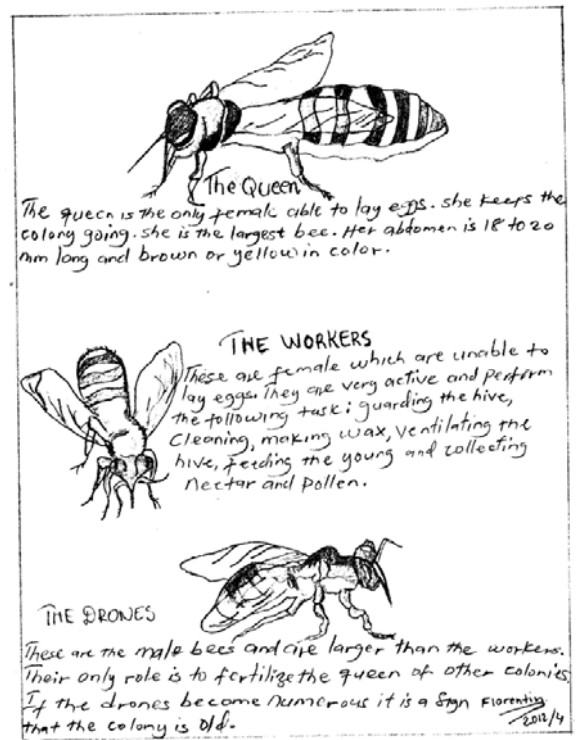 The Queen
The queen is the only female able to lay eggs. she keeps the
colony going. she is the largest bee. Her abdomen is 18 to 20
mm long and brown or yellow in color.
THE WORKERS
These are female which are unable to
lay eggs. They are very active and perform
the following task: guarding the hive,
Cleaning, making wax, ventilating the
hive, feeding the young and collecting
nectar and pollen.
THE DRONES
These are the male bees and are larger than the workers.
Their only role is to fertilize the queen of other colonies
If the drones become numerous it is a sign
that the colony is old.
Florentin
2012/4